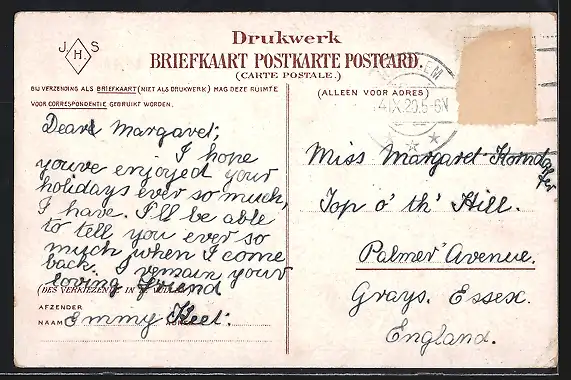 Drukwerk
BRIEFKAART POSTKARTE POSTCARD.
(CARTE POSTALE.)
J H S
BIJ VERZENDING ALS BRIEFKAART (NIET ALS DRUKWERK) MAG DEZE RUIMTE
VOOR CORRESPONDENTIE GEBRUIKT WORDEN.
(ALLEEN VOOR ADRES)
4 IX 20 5-6V
Dear Margaret;
I hope
you've enjoyed your
holidays ever so much,
I have. I'll be able
to tell you ever so
much when I come
back. I remain your
loving friend
AFZENDER
NAAM Emmy Keet.
Miss Margaret
Top o' th' Hill.
Palmer Avenue.
Grays. Essex.
England.